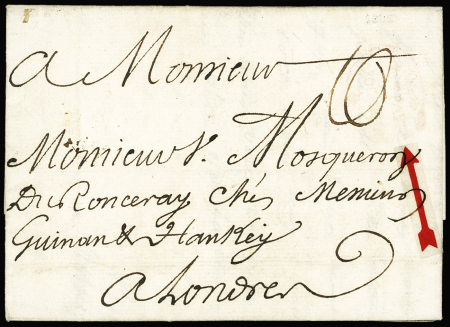 A Monsieur 10
Monsieur V. Mosqueron
Du Ronceray Chés Messieurs
Guinan & Hankey
A Londres